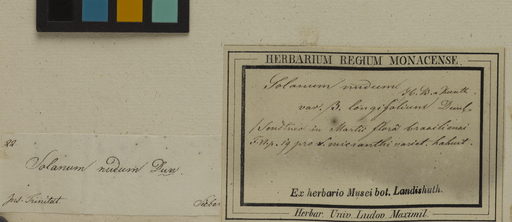 HERBARIUM REGIUM MONACENSE
Solanum nudum H. B. & Kunth.
var. β. longifolium Dunl.
(Sendtner in Martii flora brasiliensi
pro S. micranthi variet. habuit.
Ex herbario Musei bot. Landishuth.
Herbar. Univ. Ludov. Maximil.
Solanum nudum Dun
Ins. Trinitat
Sieber